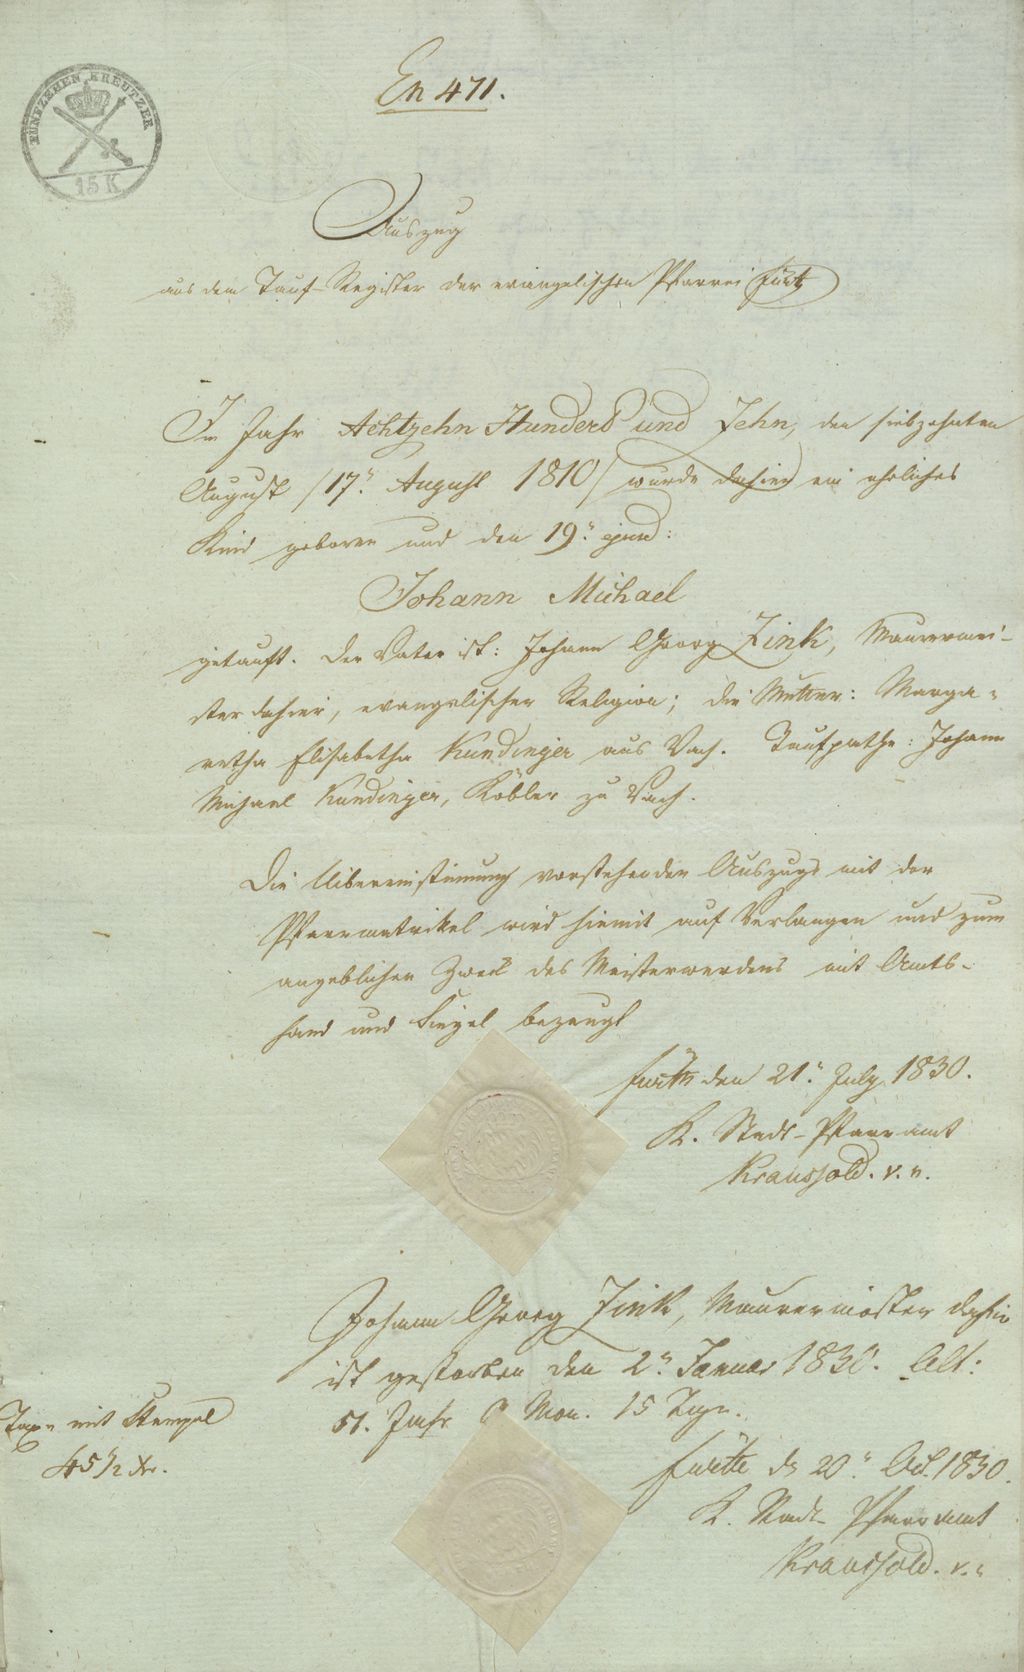 FÜNFZEHEN KREUTZER
15 K
En 471.
Auszug
aus dem Tauf-Register der evangelischen Pfarrei Fürth
Im Jahr Achtzehn Hundert und Zehn, den siebzehnten
August /17.n August 1810/ wurde dahier ein ehrliches
Kind geboren und den 19.n ejusd:
Johann Michael
getauft. Der Vater ist: Johann Georg Zink, Maurermei-
ster dahier, evangelischer Religion; die Mutter: Marga-
retha Elisabetha Kundinger aus Vach. Taufpathe: Johann
Michael Kundinger, Köbler zu Vach.
Die Uibereinstimmung vorstehenden Auszugs mit der
Pfarrmatrikel wird hiemit auf Verlangen und zum
angeblichen Zweck des Meisterwerdens mit Amts-
hand und Siegel bezeugt
Fürth den 21.n July 1830.
K. Stadt-Pfarramt
Kraussold. v. n.
Johann Georg Zink, Maurermeister dahier
ist gestorben den 2.n Januar 1830. Alt:
51. Jahr Mon. 15 Tage.
Taxe mit Stempel
45 1/2 Kr.
Fürth d 20.n Oct. 1830.
K. Stadt-Pfarramt
Kraussold. v. n.